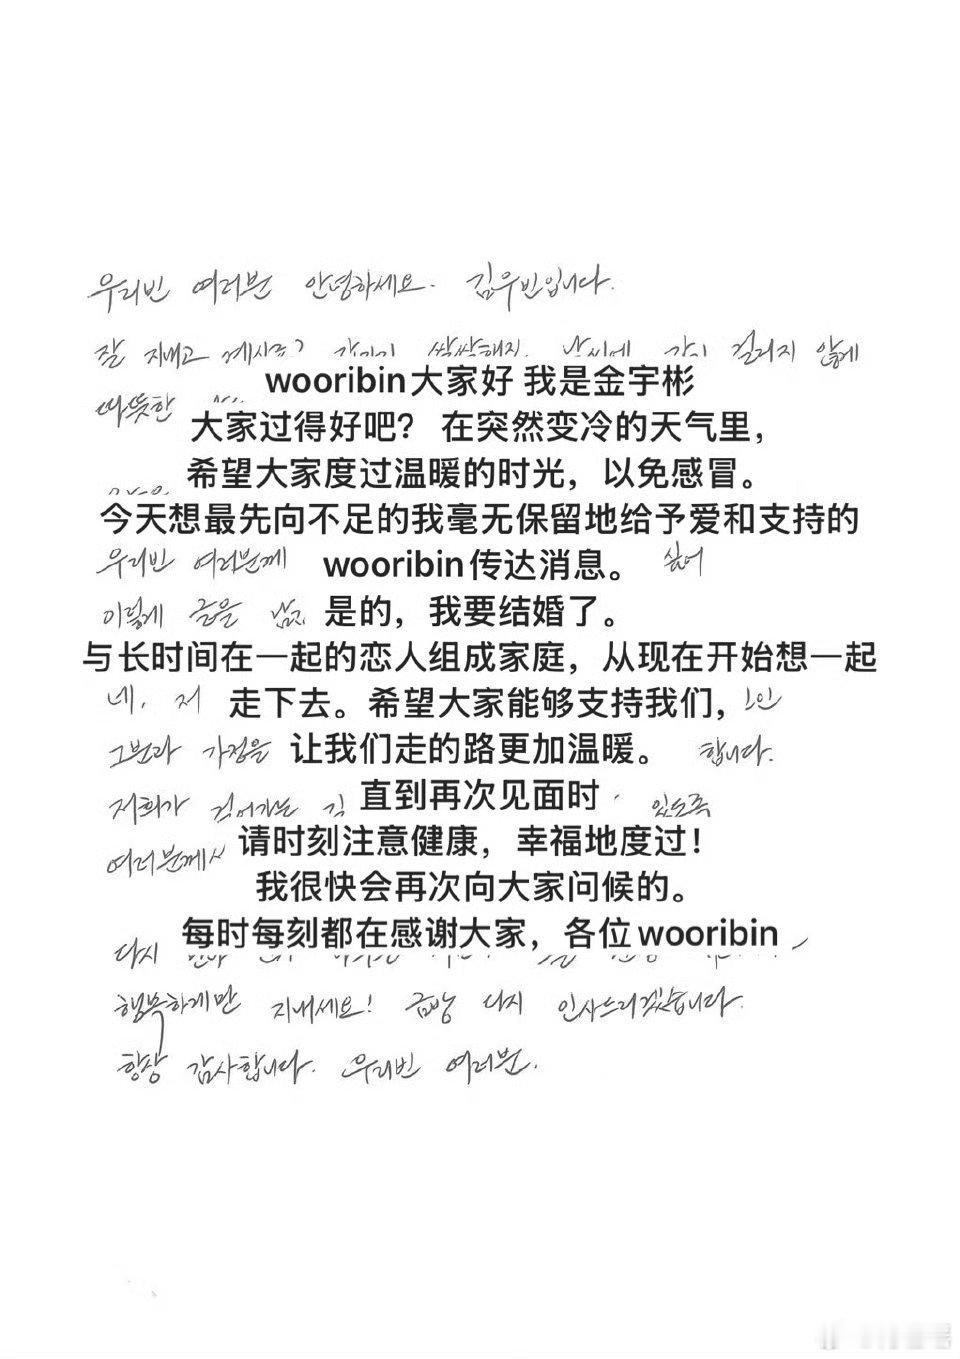 우리빈 여러분 안녕하세요. 김우빈입니다.
잘 지내고 걸리지 않게
wooribin大家好 我是金宇彬
따뜻한
大家过得好吧？ 在突然变冷的天气里，
希望大家度过温暖的时光，以免感冒。
今天想最先向不足的我毫无保留地给予爱和支持的
우리빈 여러분께 싶어
wooribin传达消息。
이렇게 글을
是的，我要结婚了。
与长时间在一起的恋人组成家庭，从现在开始想一起
네, 저
走下去。希望大家能够支持我们，
그분과 가정을 합니다.
让我们走的路更加温暖。
저희가 걸어가는 있도록
直到再次见面时
여러분께서
请时刻注意健康，幸福地度过！
我很快会再次向大家问候的。
每时每刻都在感谢大家，各位wooribin
다시
행복하게만 지내세요! 금방 다시 인사드리겠습니다.
항상 감사합니다. 우리빈 여러분.